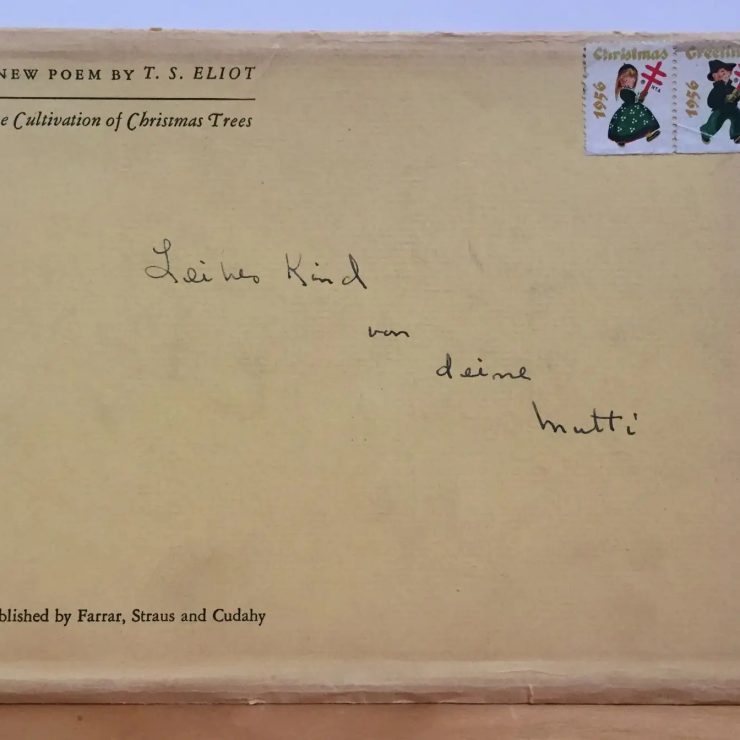 NEW POEM BY T. S. ELIOT
e Cultivation of Christmas Trees
Christmas
1956
NTA
Greetin
1956
Leibes Kind
von
deine
Mutti
blished by Farrar, Straus and Cudahy